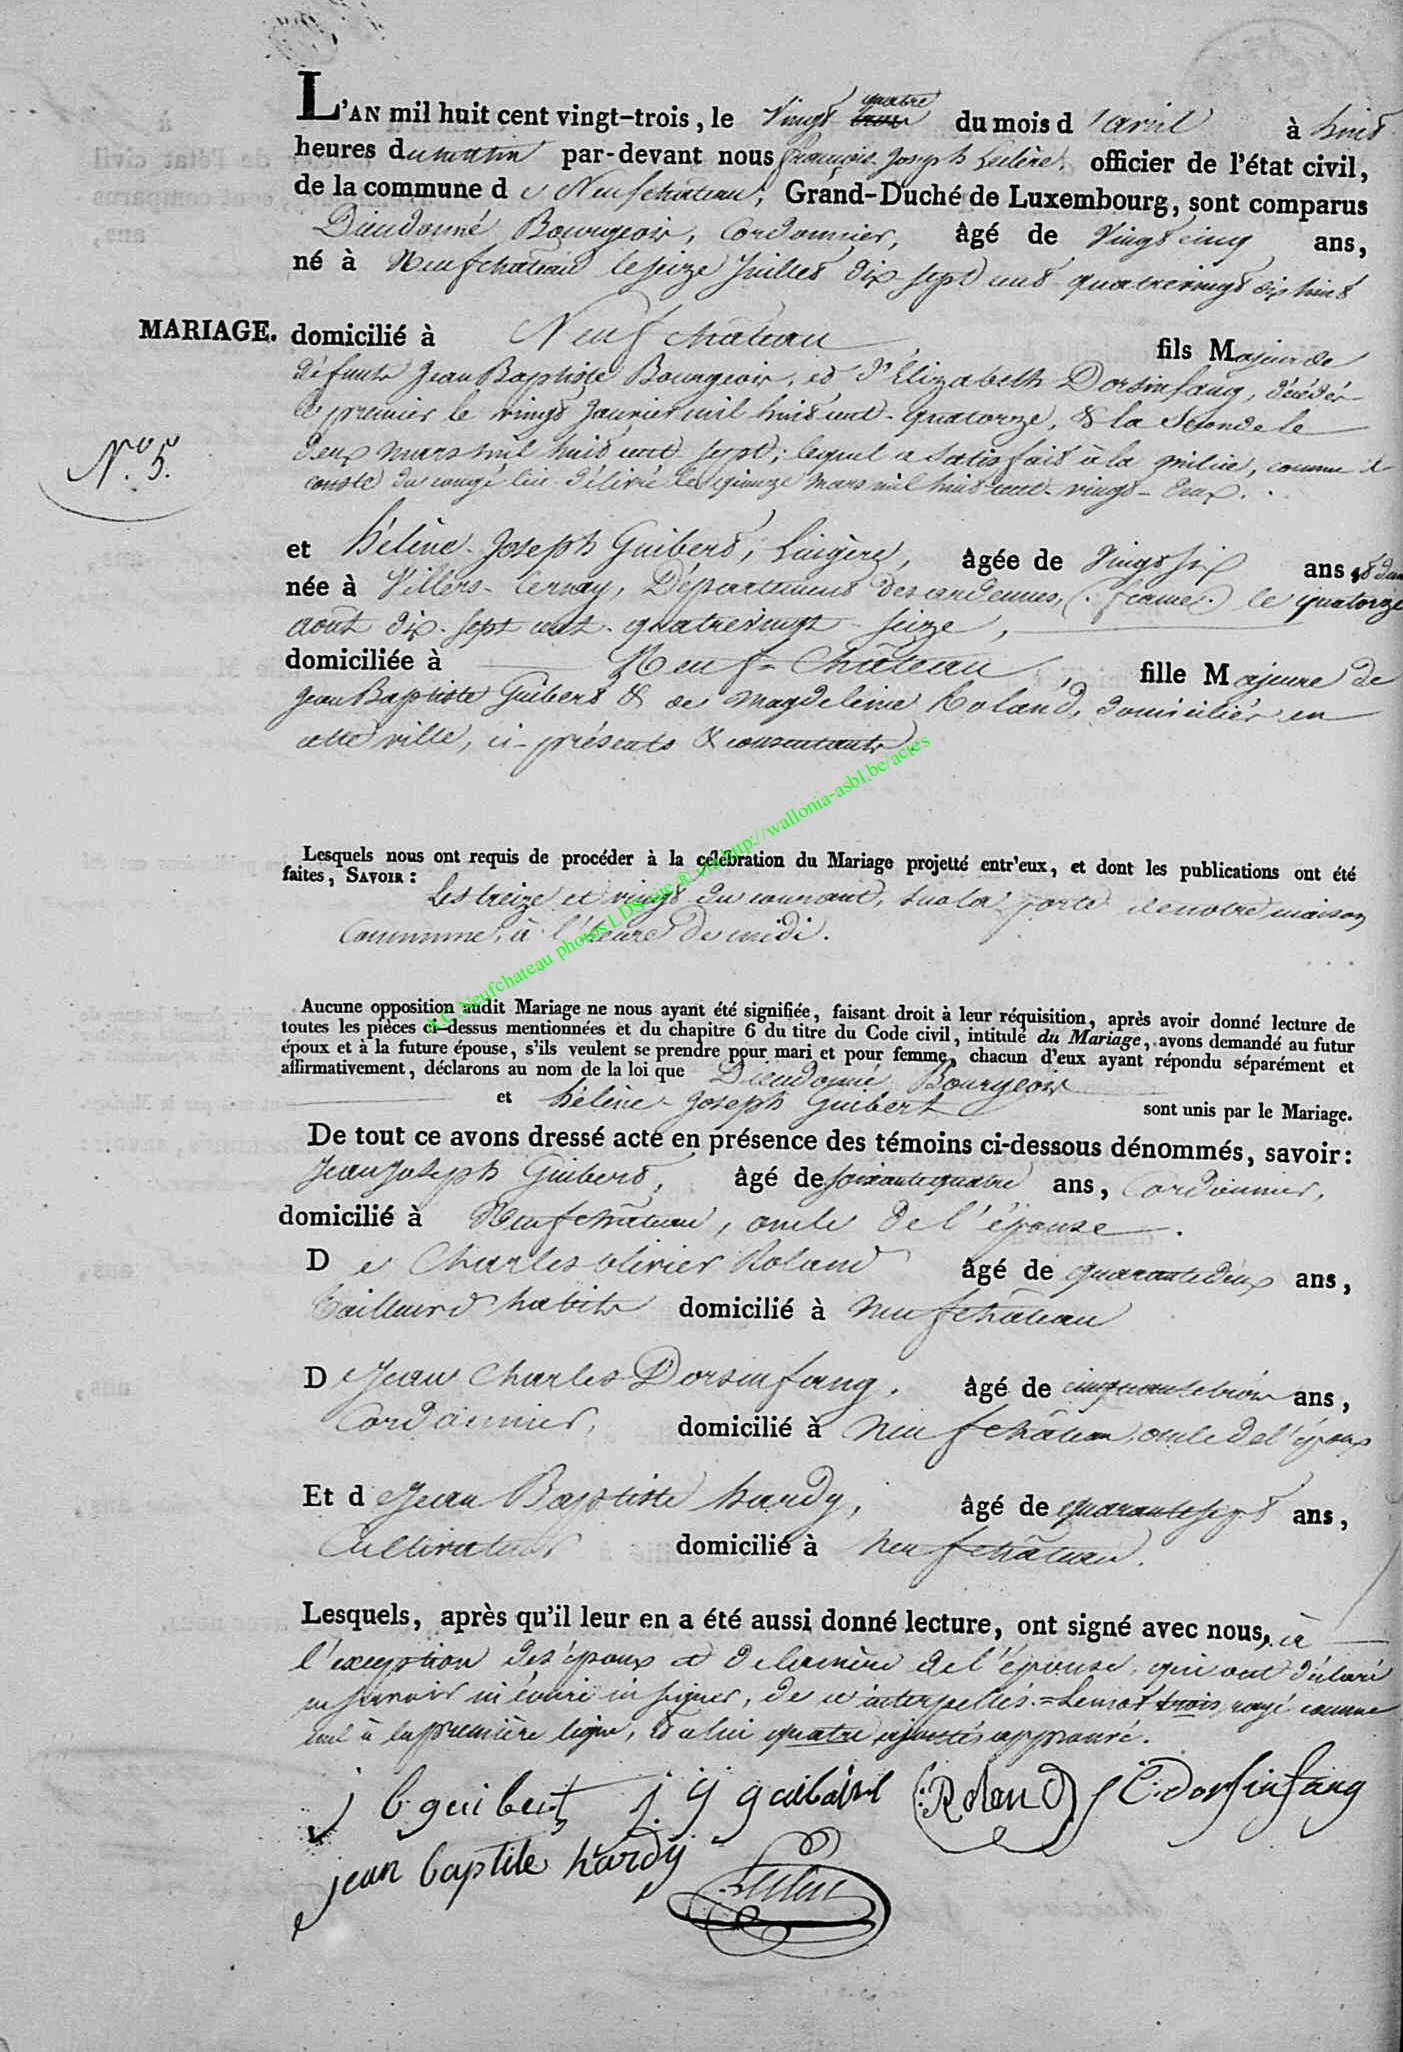 L'AN mil huit cent vingt-trois, le vingt trois quatre du mois d'avril à huit
heures du matin par-devant nous françois Joseph officier de l'état civil,
de la commune d e Neufchâteau, Grand-Duché de Luxembourg, sont comparus
Dieudonné Bourgeois, Cordonnier, âgé de vingt cinq ans,
né à Neufchâteau le seize Juillet dix sept cent quatrevingt dix huit
MARIAGE. domicilié à Neufchâteau, fils Majeur de
défunts Jean Baptiste Bourgeois, et d'Elizabeth Dorsinfang, décédés
le premier le vingt Janvier mil huit cent quatorze, & la Seconde le
N.º 5.
deux mars mil huit cent sept; lequel a satisfait à la milice, comme il
conste du congé lui délivré le quinze mars mil huit cent vingt deux.
et hélène Joseph Guibert, Lingère, âgée de vingt six ans
née à Villers-Cernay, Département des ardennes, (france) le quatorze
août dix-sept cent quatrevingt seize,
domiciliée à Neuf-Château, fille Majeure de
Jean Baptiste Guibert & de magdeleine Roland, domiciliés en
cette ville, ci-présents & consentants.
Lesquels nous ont requis de procéder à la célébration du Mariage projetté entr'eux, et dont les publications ont été
faites, SAVOIR :
Les treize et vingt du courant, sur la porte de notre maison
Commune, à l'heure de midi.
Aucune opposition audit Mariage ne nous ayant été signifiée, faisant droit à leur réquisition, après avoir donné lecture de
toutes les pièces ci-dessus mentionnées et du chapitre 6 du titre du Code civil, intitulé du Mariage, avons demandé au futur
époux et à la future épouse, s'ils veulent se prendre pour mari et pour femme, chacun d'eux ayant répondu séparément et
affirmativement, déclarons au nom de la loi que Dieudonné Bourgeois
et hélène Joseph Guibert sont unis par le Mariage.
De tout ce avons dressé acte en présence des témoins ci-dessous dénommés, savoir :
Jean Joseph Guibert, âgé de soixante quatre ans, Cordonnier,
domicilié à Neufchâteau, oncle de l'épouse.
D e Charles olivier Roland âgé de quarante deux ans,
tailleur d'habits domicilié à Neufchâteau
D e Jean Charles Dorsinfang, âgé de cinquante trois ans,
Cordonnier, domicilié à Neufchâteau, oncle de l'époux
Et d e Jean Baptiste hardy, âgé de quarante sept ans,
Cultivateur domicilié à Neufchâteau.
Lesquels, après qu'il leur en a été aussi donné lecture, ont signé avec nous, à
l'exception des époux et de la mère de l'épouse, qui ont déclaré
ne savoir ni écrire ni signer, de ce interpellés. = Le mot trois, rayé comme
nul à la première ligne, & celui quatre ajouté approuvé.
j b guibert j j guibert Roland J C: dorsinfang
jean baptite hardy
A.C. Neufchateau photos LDS site ® via http://wallonia-asbl.be/actes